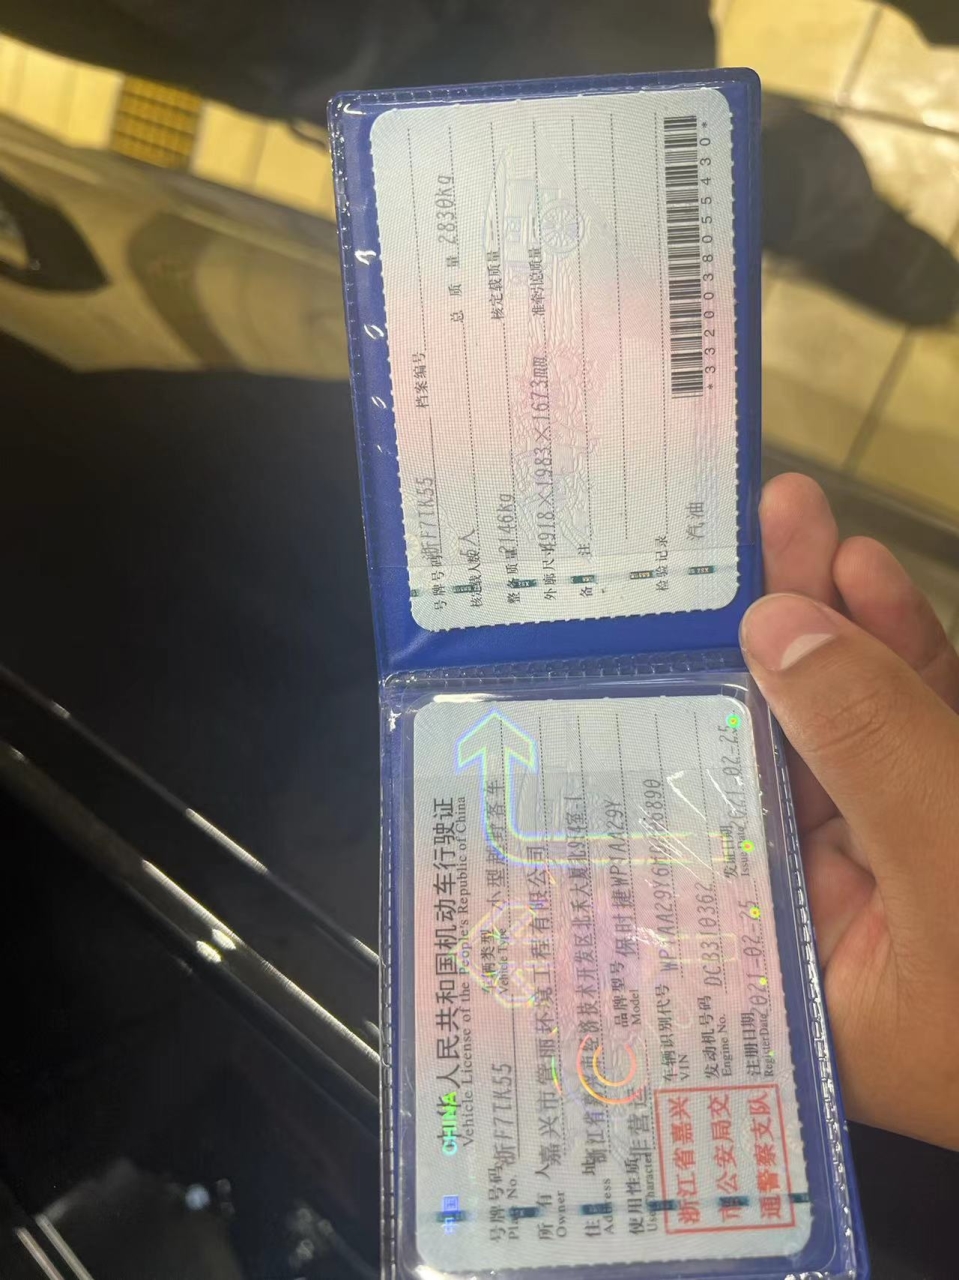 中国 CHINA
中华人民共和国机动车行驶证
Vehicle License of the People's Republic of China
号牌号码 浙F7TK55 车辆类型 小型越野客车
Plate No. Vehicle Type
所有人 嘉兴市管丽环境工程有限公司
Owner
住址
Address
使用性质 非营运 品牌型号 保时捷WP1AA29Y
Use Character Model
浙江省嘉兴
市公安局交
通警察支队
车辆识别代号
VIN
发动机号码 DCB310362
Engine No.
注册日期 2021-02-25 发证日期 2021-02-25
Register Date Issue Date
号牌号码 浙F7TK55 档案编号
核定载人数 5人 总质量 2830kg
整备质量 2146kg 核定载质量
外廓尺寸 4918×1983×1673mm 准牵引总质量
备注
检验记录
汽油
*3320038055430*